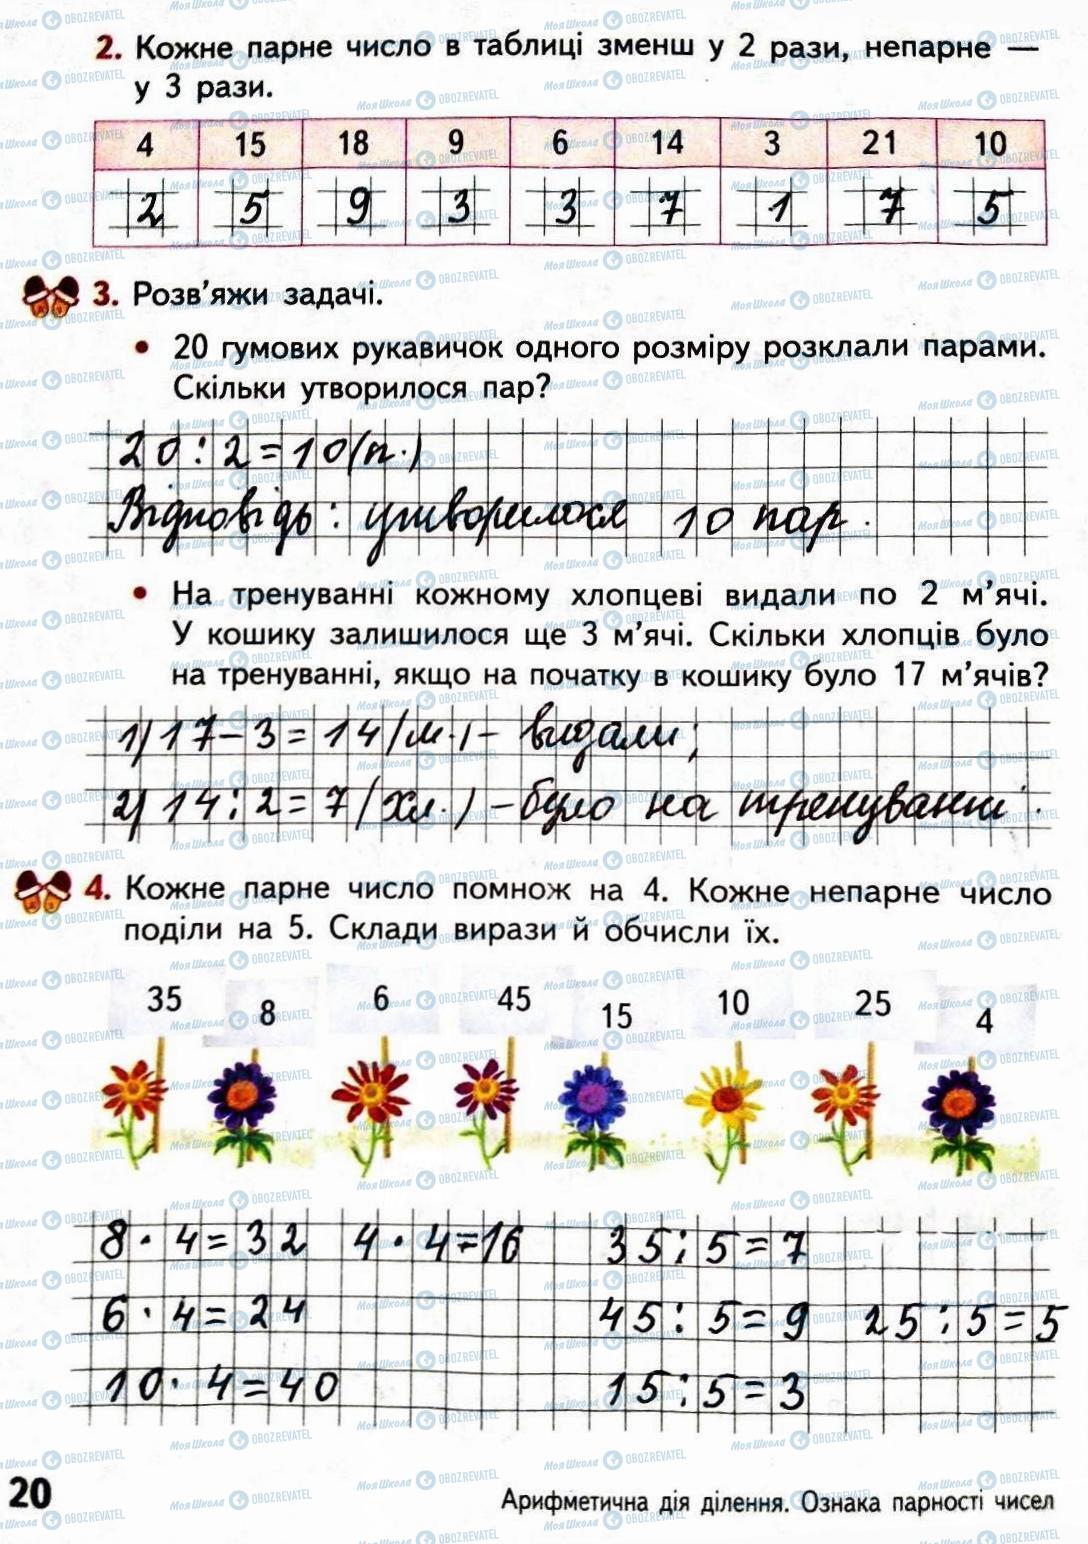 2. Кожне парне число в таблиці зменш у 2 рази, непарне —
у 3 рази.
4 15 18 9 6 14 3 21 10
2 5 9 3 3 7 1 7 5
3. Розв'яжи задачі.
• 20 гумових рукавичок одного розміру розклали парами.
Скільки утворилося пар?
20:2=10(п.)
Відповідь: утворилося 10 пар.
• На тренуванні кожному хлопцеві видали по 2 м'ячі.
У кошику залишилося ще 3 м'ячі. Скільки хлопців було
на тренуванні, якщо на початку в кошику було 17 м'ячів?
1) 17-3=14(м.) - видали;
2) 14:2=7(хл.) - було на тренуванні.
4. Кожне парне число помнож на 4. Кожне непарне число
поділи на 5. Склади вирази й обчисли їх.
35 8 6 45 15 10 25 4
8·4=32 4·4=16 35:5=7
6·4=24 45:5=9 25:5=5
10·4=40 15:5=3
20 Арифметична дія ділення. Ознака парності чисел
МояШкола OBOZREVATEL